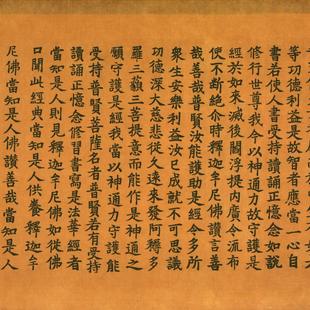 等功德利益是故智者應當一心自
書若使人書受持讀誦正憶念如說
修行世尊我今以神通力故守護是
經於如來滅後閻浮提內廣令流布
使不斷絕尒時釋迦牟尼佛讚言善
哉善哉普賢汝能護助是經令多所
衆生安樂利益汝已成就不可思議
功德深大慈悲從久遠來發阿耨多
羅三藐三菩提意而能作是神通之
願守護是經我當以神通力守護能
受持普賢菩薩名者普賢若有受持
讀誦正憶念修習書寫是法華經者
當知是人則見釋迦牟尼佛如從佛
口聞此經典當知是人供養釋迦牟
尼佛當知是人佛讚善哉當知是人